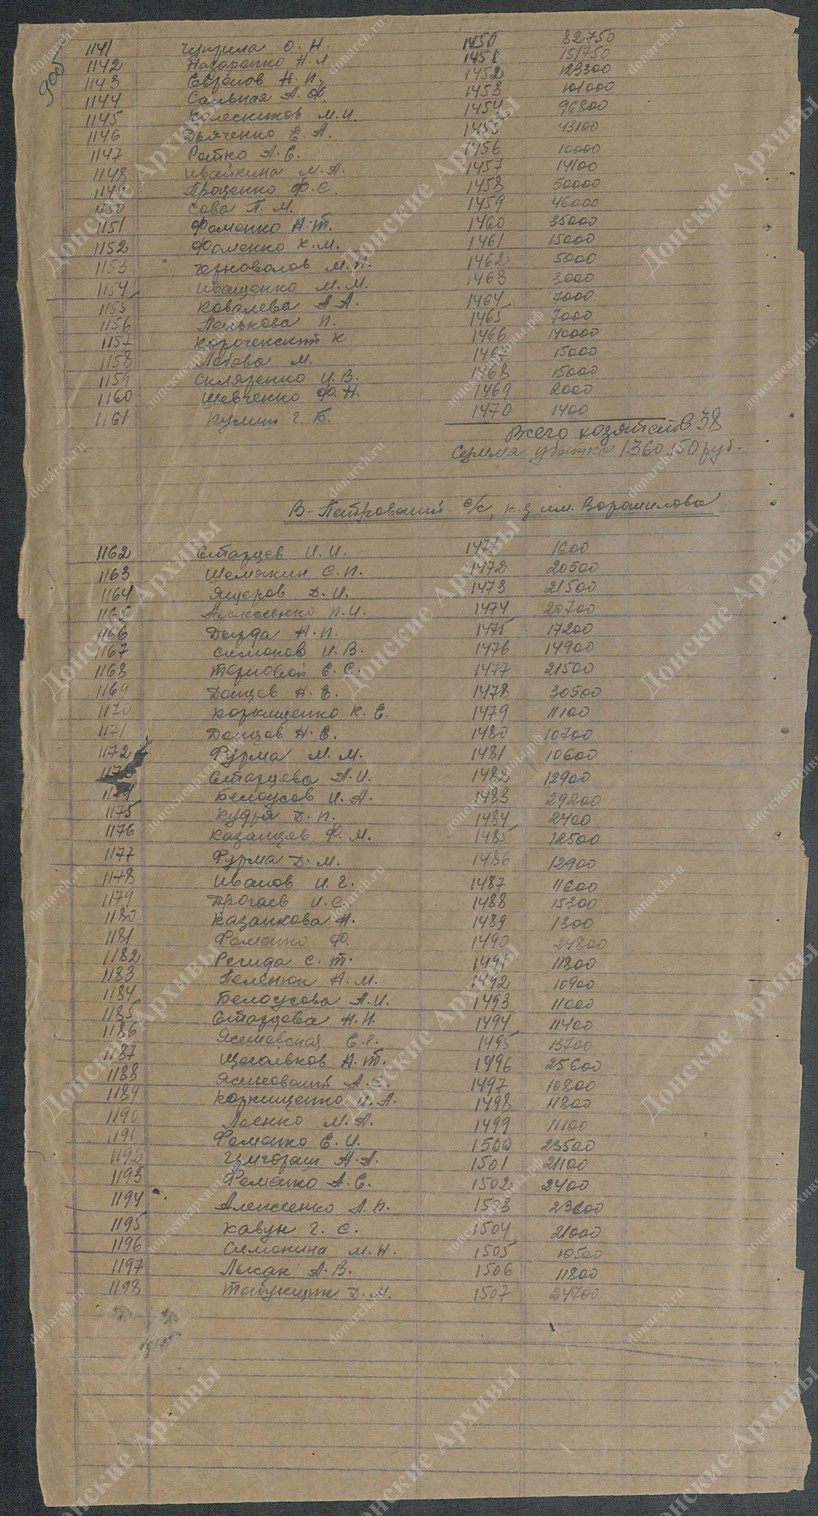 1141 Чуприна О. Н. 1450 82750
1142 Назаренко Н. Л 1451 151750
1143 Евсеев Н. П. 1452 123300
1144 Сальная А. Ф. 1453 101000
1145 Колесников М. И. 1454 96800
1146 Дьяченко Е. А. 1455 43100
1147 Ратко А. Е. 1456 10000
1148 Ивайкина М. А. 1457 14100
1149 Проценко Ф. С. 1458 50000
1150 Сова П. М. 1459 46000
1151 Фоменко Н. Т. 1460 35000
1152 Фоменко К. М. 1461 15000
1153 Черновалов М. П. 1462 5000
1154 Иващенко М. М. 1463 3000
1155 Ковалева А А. 1464 7000
1156 Пенькова П. 1465 7000
1157 К. 1466 140000
1158 Лобова М. 1467 15000
1159 Скляренко И. В. 1468 15000
1160 Шевченко Ф. Н. 1469 2000
1161 Кулиш Г. Б. 1470 1400
Всего хозяйств 38
Сумма убытка 1.360.150 руб.
В-Петровский с/с, к-з им. Ворошилова
1162 Старцев И. И. 1471 1600
1163 Шемякин С. П. 1472 20500
1164 Ящеров Д. И. 1473 21500
1165 Алексеенко П. И. 1474 20700
1166 Дырда Н. П. 1475 17200
1167 Симонов И. В. 1476 14900
1168 Терновой Е. С. 1477 21500
1169 Донцов А. Е. 1478 30500
1170 Корниценко К. Е. 1479 11100
1171 Донцов Н. Е. 1480 10700
1172 Фурма М. М. 1481 10600
1173 Старцева А. И. 1482 12900
1174 Белоусов И. А. 1483 29200
1175 Кудря Д. П. 1484 2400
1176 Казанцев Ф. М. 1485 12500
1177 Фурма Д. М. 1486 12900
1178 Иванов И. Г. 1487 11600
1179 Дрогаев И. С. 1488 15300
1180 Казанкова А. 1489 1300
1181 Фоменко Ф. 1490 21800
1182 Регида С. Т. 1491 11800
1183 Пеленюк А. М. 1492 10900
1184 Белоусова А. И. 1493 11000
1185 Старцева Н. П. 1494 11400
1186 Ясиновская Е. Г. 1495 13700
1187 Щегольков А. Т. 1496 25600
1188 Ясиновский А. С. 1497 10800
1189 Корниценко И. А. 1498 11800
1190 Лоенко М. А. 1499 11100
1191 Фоменко Е. И. 1500 23500
1192 А. А. 1501 21100
1193 Фоменко А. Е. 1502 2400
1194 Алексеенко А. П. 1503 23600
1195 Кавун Г. С. 1504 21000
1196 Симонина М. Н. 1505 10500
1197 Лысак А. В. 1506 11800
1198 Табунщик Д. М. 1507 24700